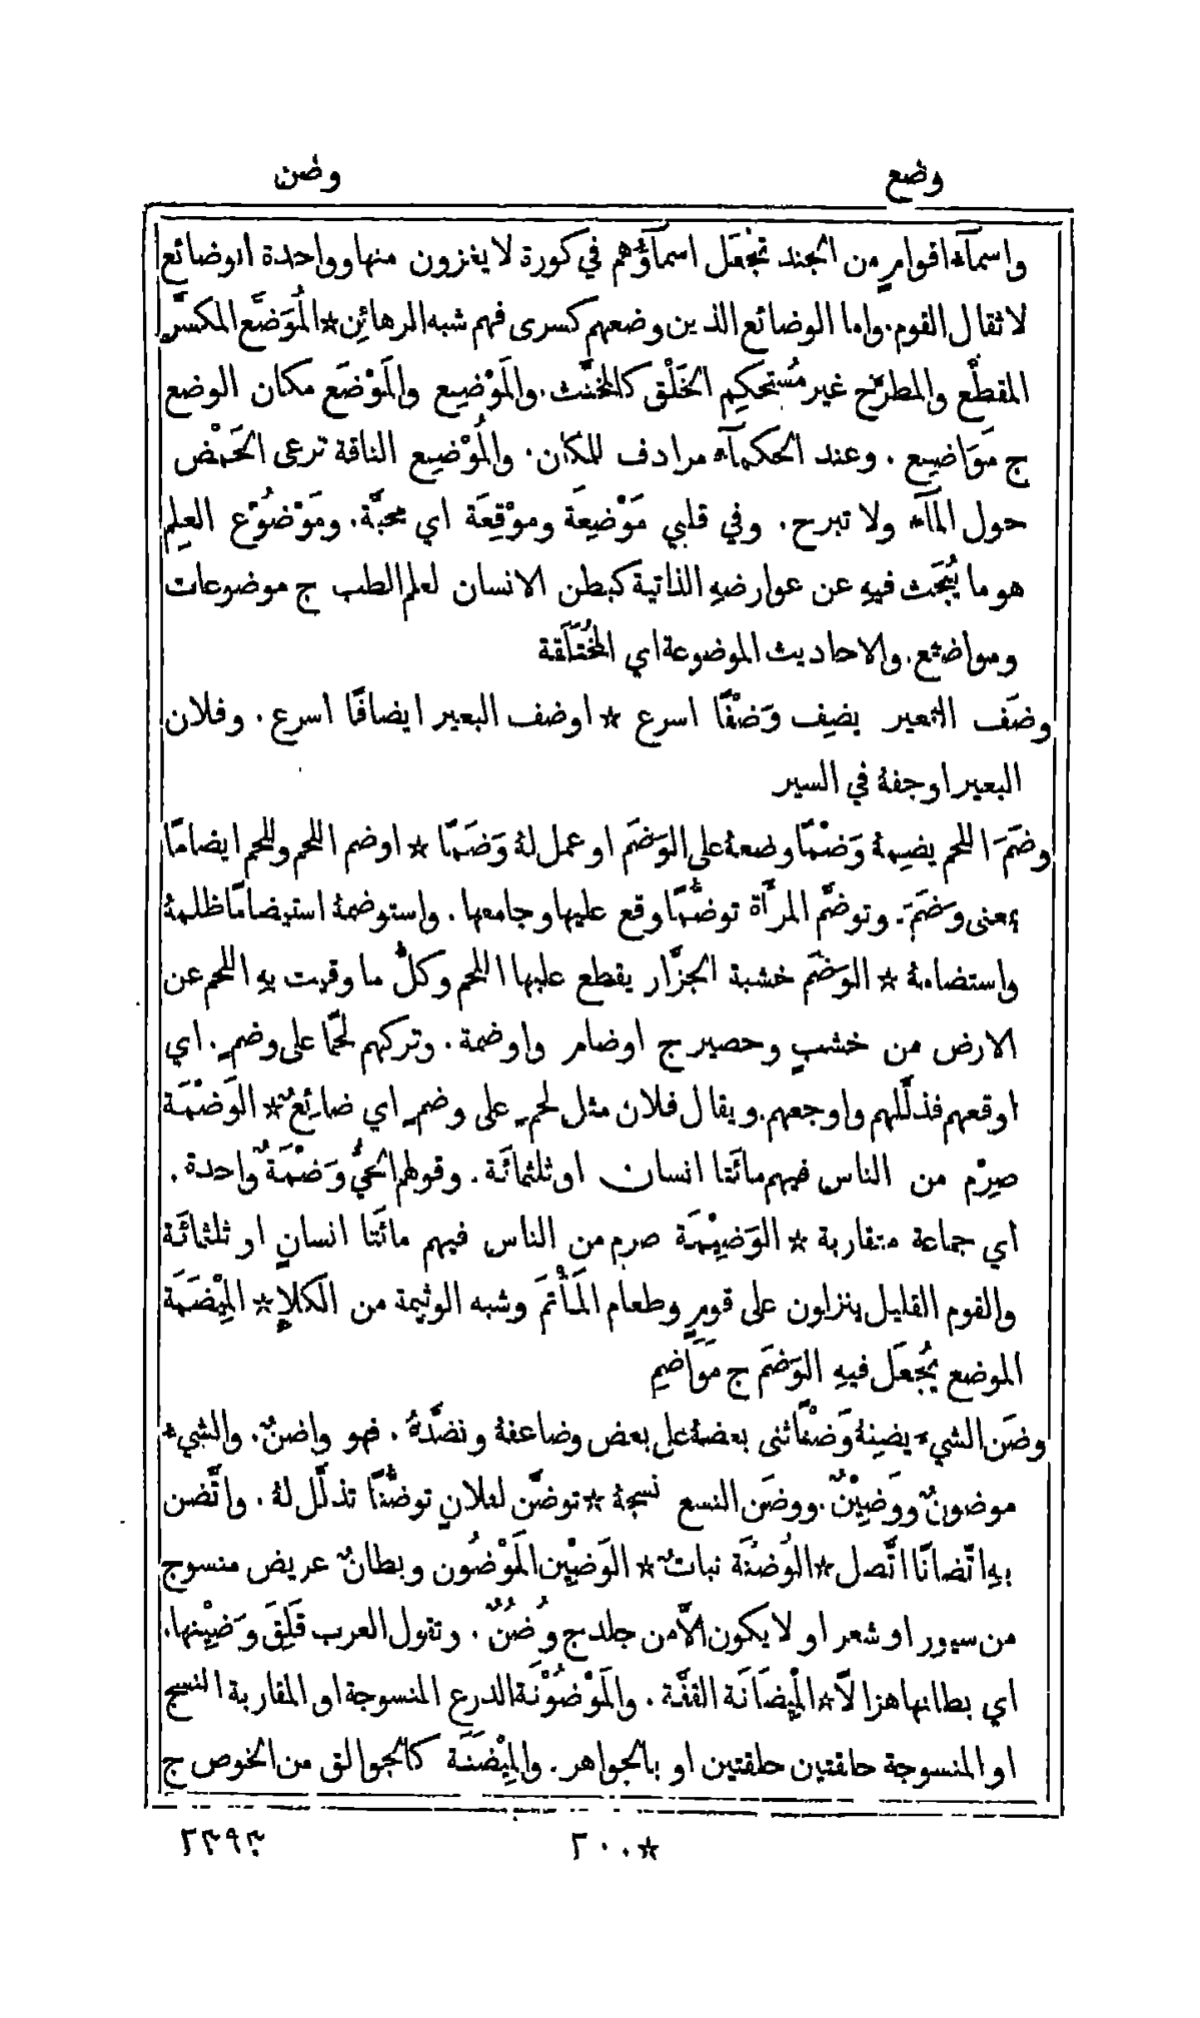 وضع
وضن
واسمآء اقوامٍ من الجند تُجْعَل اسمآؤُهم في كورة لا يغزون منها وواحدة الوضائع
لاثقال القوم. واما الوضائع الذين وضعهم كسرى فهم شبه الرهائِن ☆ المُوَضَّع المكسَّر
المقطَّع والمطرَّح غير مُستحكِم الخَلْق كالمخنَّث. والمَوْضِع والمَوْضَع مكان الوضع
ج مَوَاضيع. وعند الحكمآء مرادف للمكان. والمُوْضِع الناقة ترعى الحَمْض
حول المآء ولا تبرح. وفي قلبي مَوْضِعَة ومَوْقِعَة اي محبَّة. ومَوْضُوْع العلم
هو ما يُبحَث فيهِ عن عوارضهِ الذاتية كبطن الانسان لعلم الطب ج موضوعات
ومواضيع. والاحاديث الموضوعة اي المُخْتَلَقة
وضَف البعير يضِف وَضْفًا اسرع ☆ اوضف البعير ايضافًا اسرع. وفلان
البعير اوجفهُ في السير
وضَمَ اللحم يضِمهُ وَضْمًا وضعهُ على الوَضَم او عمل لهُ وَضَمًا ☆ اوضم اللحم وللحم ايضامًا
بمعنى وضَمَ. وتوضَّم المرأَة توضُّمًا وقع عليها وجامعها. واستوضمهُ استيضامًا ظلمهُ
واستضامهُ ☆ الوَضَم خشبة الجزَّار يقطع عليها اللحم وكلُّ ما وقيت بهِ اللحم عن
الارض من خشبٍ وحصير ج اوضام واوضمة. وتركهم لحمًا على وضمٍ. اي
اوقعهم فذلَّلهم واوجعهم. ويقال فلان مثل لحمٍ على وضمٍ اي ضائِعٌ ☆ الوَضْمَة
صِرْم من الناس فيهم مائَتا انسان او ثلثمائَة. وقولهم الحيُّ وَضْمَةٌ واحدة.
اي جماعة متقاربة ☆ الوَضِيْمَة صرم من الناس فيهم مائَتا انسانٍ او ثلثمائَة
والقوم القليل ينزلون على قومٍ وطعام المَأْتَم وشبه الوثيمة من الكلإِ ☆ المِيْضَمَة
الموضع يُجْعَل فيهِ الوَضَم ج مَوَاضِم
وضَن الشيءَ يضِنهُ وَضْنًا ثنى بعضهُ على بعض وضاعفهُ ونضَّدهُ. فهو واضنٌ. والشيء
موضونٌ ووَضِيْنٌ. ووضَن النسع نسجهُ ☆ توضَّن لفلانٍ توضُّنًا تذلَّل لهُ. واتَّضن
بهِ اتّضانًا اتَّصل ☆ الوُضْنَة نباتٌ ☆ الوَضِيْن المَوْضُون وبطانٌ عريض منسوج
من سيور او شعر او لا يكون الَّا من جلد ج وُضُنٌ. وتقول العرب قَلِقَ وَضِيْنها.
اي بطانها هزالًا ☆ المِيْضَانَة القفَّة. والمَوْضُوْنَة الدرع المنسوجة او المقاربة النسج
او المنسوجة حلقتين حلقتين او بالجواهر. والمِيْضَنَة كالجوالق من الخوص ج
☆ ٢٠٠
٢٣٩٣